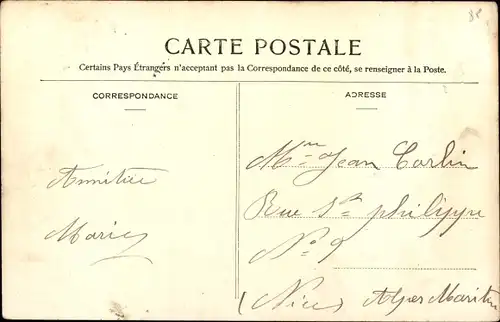 CARTE POSTALE
Certains Pays Étrangers n'acceptant pas la Correspondance de ce côté, se renseigner à la Poste.
CORRESPONDANCE
ADRESSE
Amitiée
Marie
Mme Jean Carlin
Rue St philippe
No 9
(Nice) Alpes Maritim